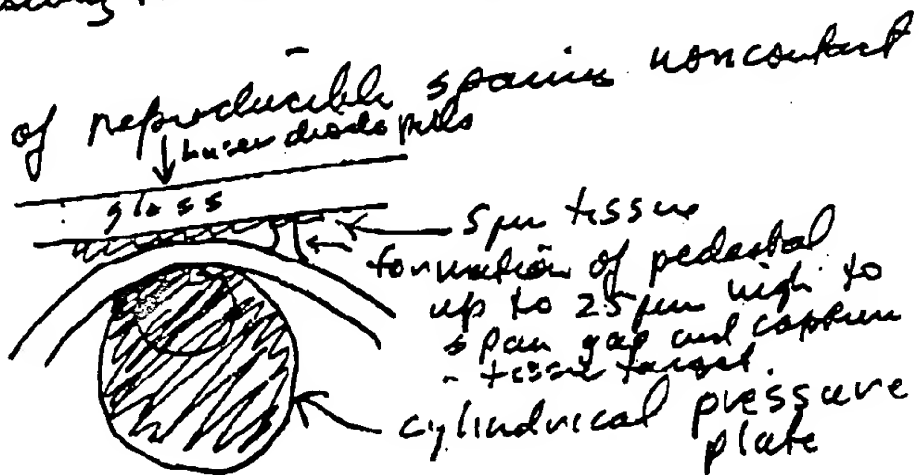 of reproducible spacing noncontact
laser diode pulls
glass
5 µm tissue
formation of pedestal
up to 25 µm high to
span gap and capture
- tissue target
cylindrical pressure
plate